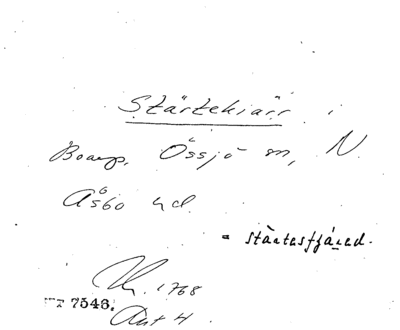 Stärtekiärr
Boarp, Össjö sn, N.
Åsbo hd.
= stärtasfjäred.
1768
7546.
Akt 4